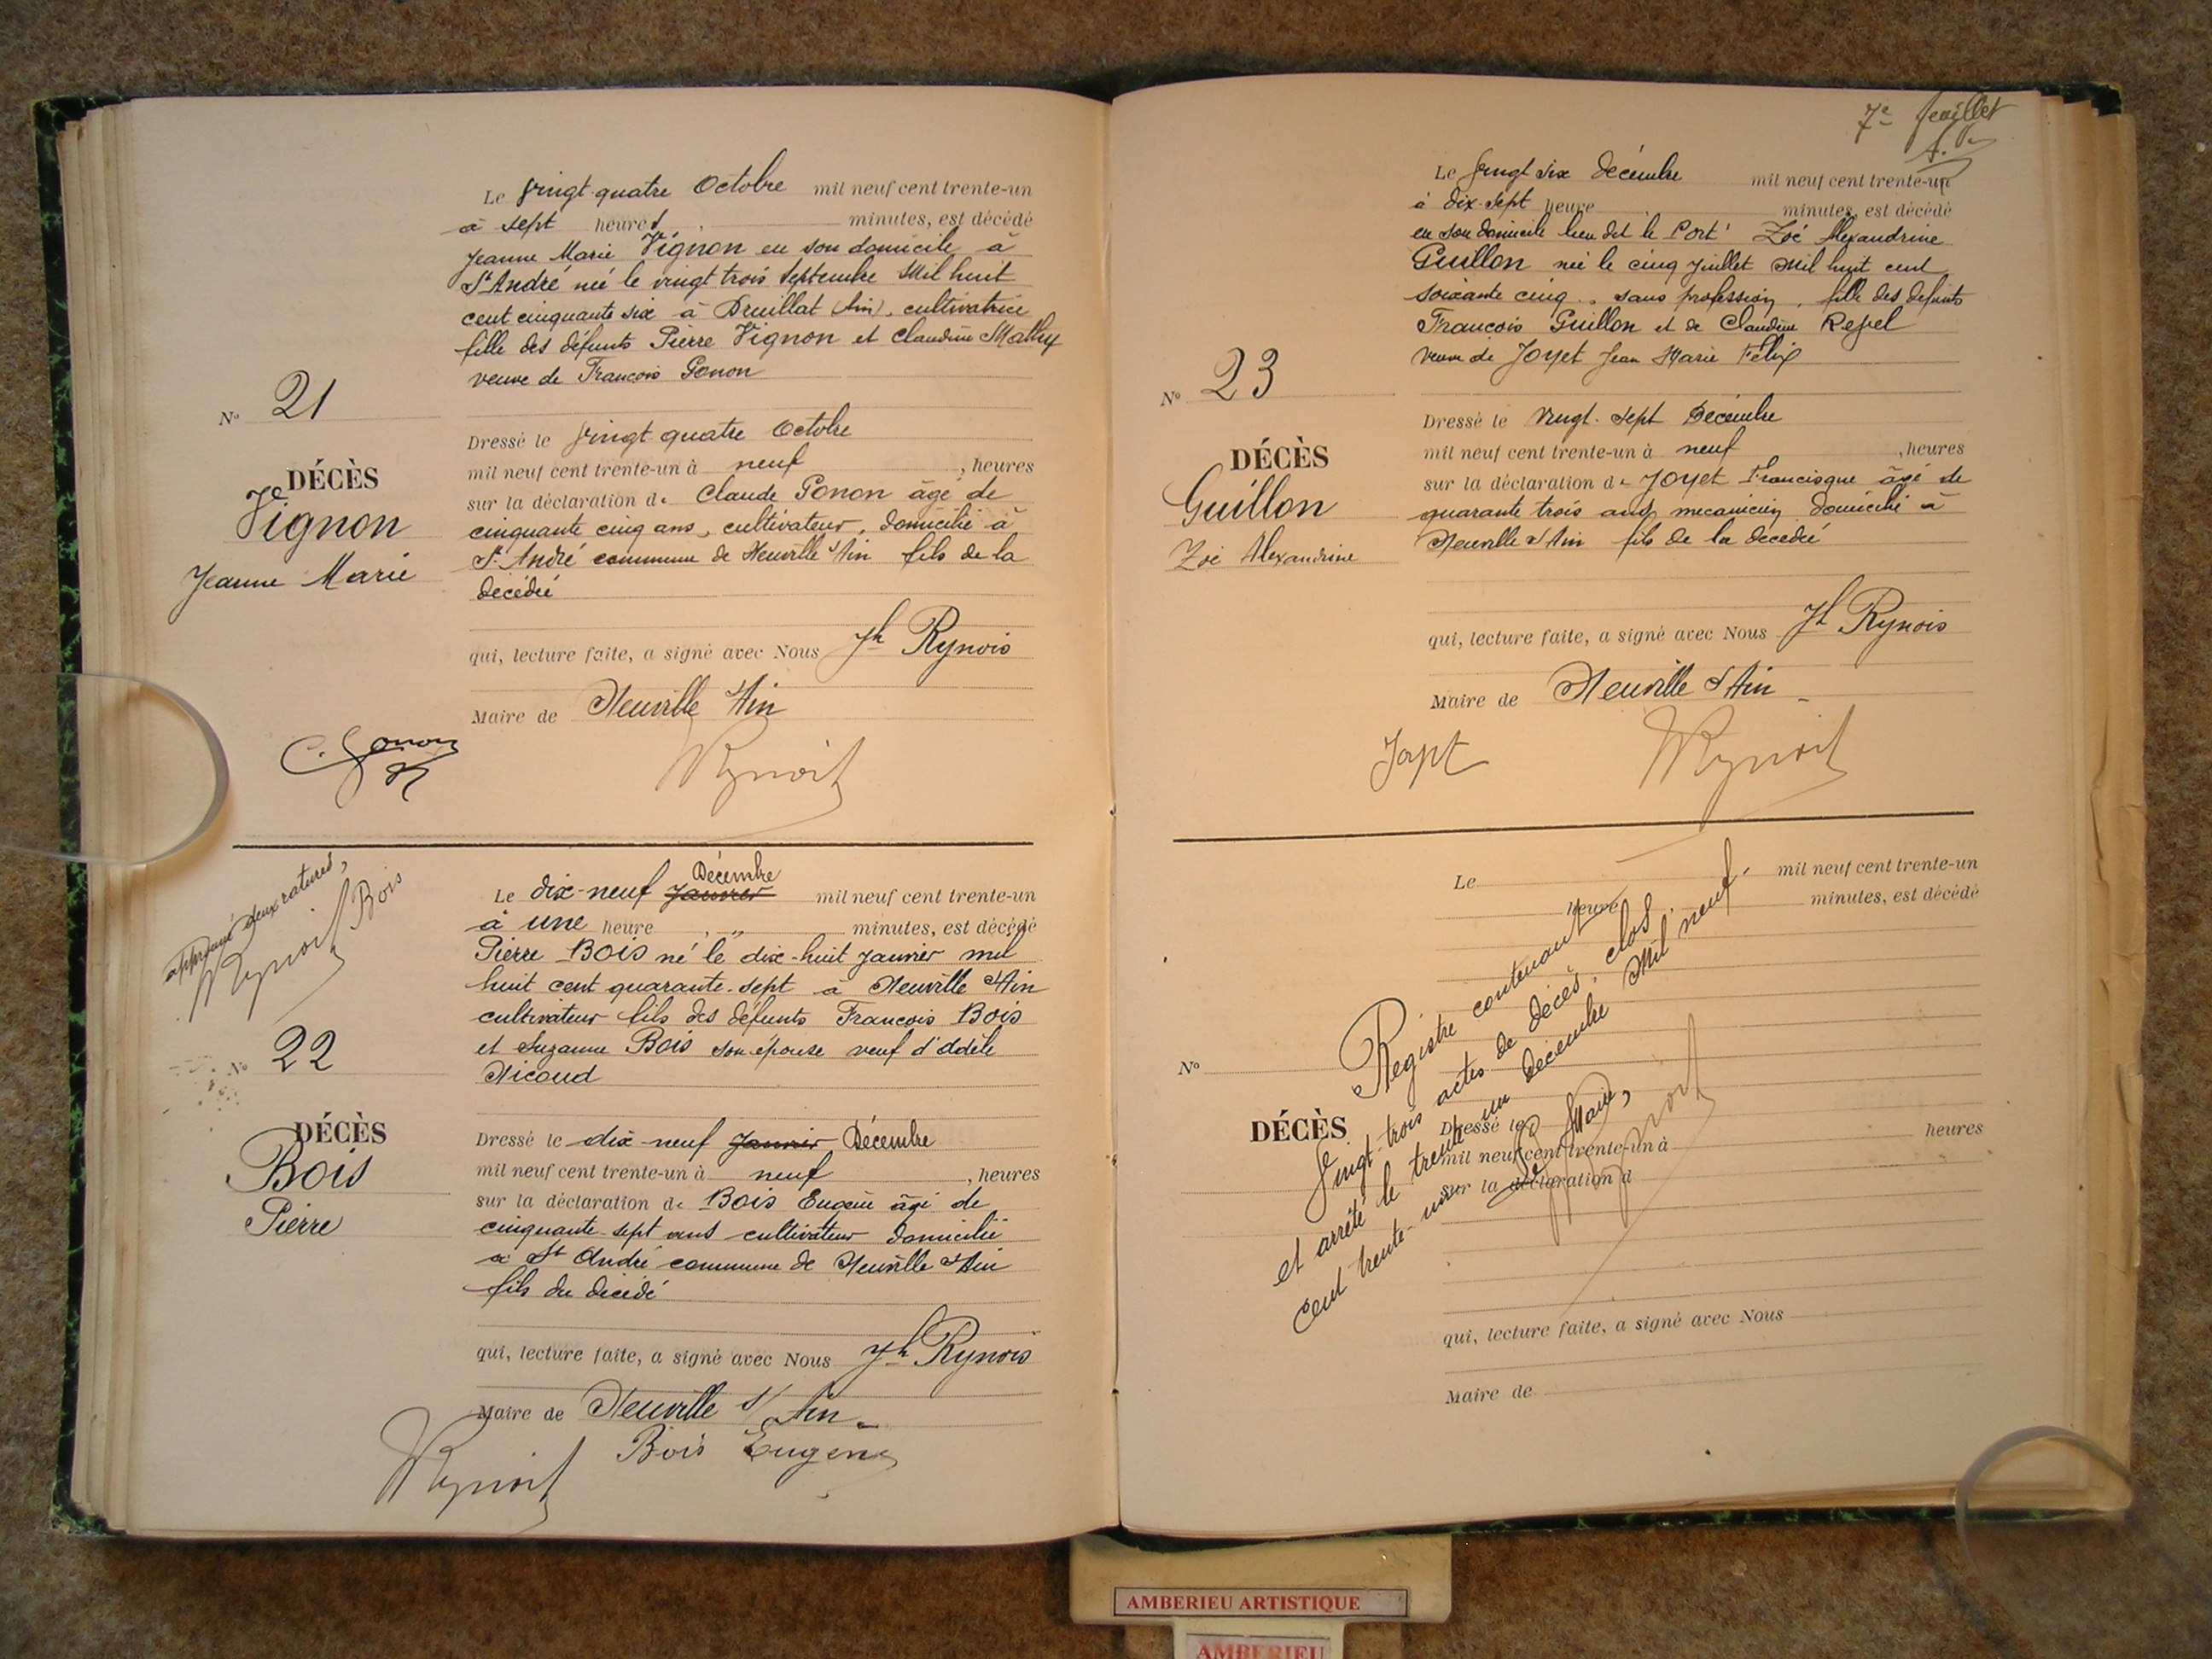 Le vingt quatre Octobre mil neuf cent trente-un
à sept heures minutes, est décédé
Jeanne Marie Vignon en son domicile à
St André née le vingt trois Septembre Mil huit
cent cinquante six à Druillat (Ain), cultivatrice
fille des défunts Pierre Vignon et Claudine Mathy
veuve de Francois Gonon
N° 21
DÉCÈS
Vignon
Jeanne Marie
Dressé le vingt quatre Octobre
mil neuf cent trente-un à neuf , heures
sur la déclaration de Claude Gonon âgé de
cinquante cinq ans, cultivateur, domicilié à
St André commune de Neuville s/Ain fils de la
décédée
qui, lecture faite, a signé avec Nous Jh Rynois
Maire de Neuville s/Ain
C. Gonon
Rynois
approuvé deux ratures,
Rynois Bois
Le dix-neuf Janvier Décembre mil neuf cent trente-un
à une heure , „ minutes, est décédé
Pierre Bois né le dix-huit Janvier mil
huit cent quarante-sept à Neuville s/Ain
cultivateur fils des défunts Francois Bois
et Suzanne Bois son épouse veuf d'Adèle
Nicoud
N° 22
DÉCÈS
Bois
Pierre
Dressé le dix-neuf Janvier Décembre
mil neuf cent trente-un à neuf , heures
sur la déclaration de Bois Eugène âgé de
cinquante-sept ans cultivateur domicilié
à St André commune de Neuville s/Ain
fils du décédé
qui, lecture faite, a signé avec Nous Jh Rynois
Maire de Neuville s/ Ain
Rynois Bois Eugène
7e feuillet
Le vingt six décembre mil neuf cent trente-un
à dix-sept heure minutes, est décédé
en son domicile lieu dit le Port Zoé Alexandrine
Guillon née le cinq Juillet Mil huit cent
soixante cinq, sans profession, fille des défunts
Francois Guillon et de Claudine
veuve de Joyet Jean Marie Félix
N° 23
DÉCÈS
Guillon
Zoé Alexandrine
Dressé le Vingt-sept Décembre
mil neuf cent trente-un à neuf , heures
sur la déclaration de Joyet Francisque âgé de
quarante trois ans mecanicien domicilié à
Neuville s/Ain fils de la décédée
qui, lecture faite, a signé avec Nous Jh Rynois
Maire de Neuville s/Ain
Rynois
Le mil neuf cent trente-un
heure minutes, est décédé
N°
DÉCÈS
Dressé le
mil neuf cent trente-un à heures
sur la déclaration d
qui, lecture faite, a signé avec Nous
Maire de
Registre contenant
Vingt-trois actes de décès, clos
et arrêté le trente un Décembre Mil neuf
cent trente-un
Le Maire,
Rynois
AMBERIEU ARTISTIQUE
AMBERIEU